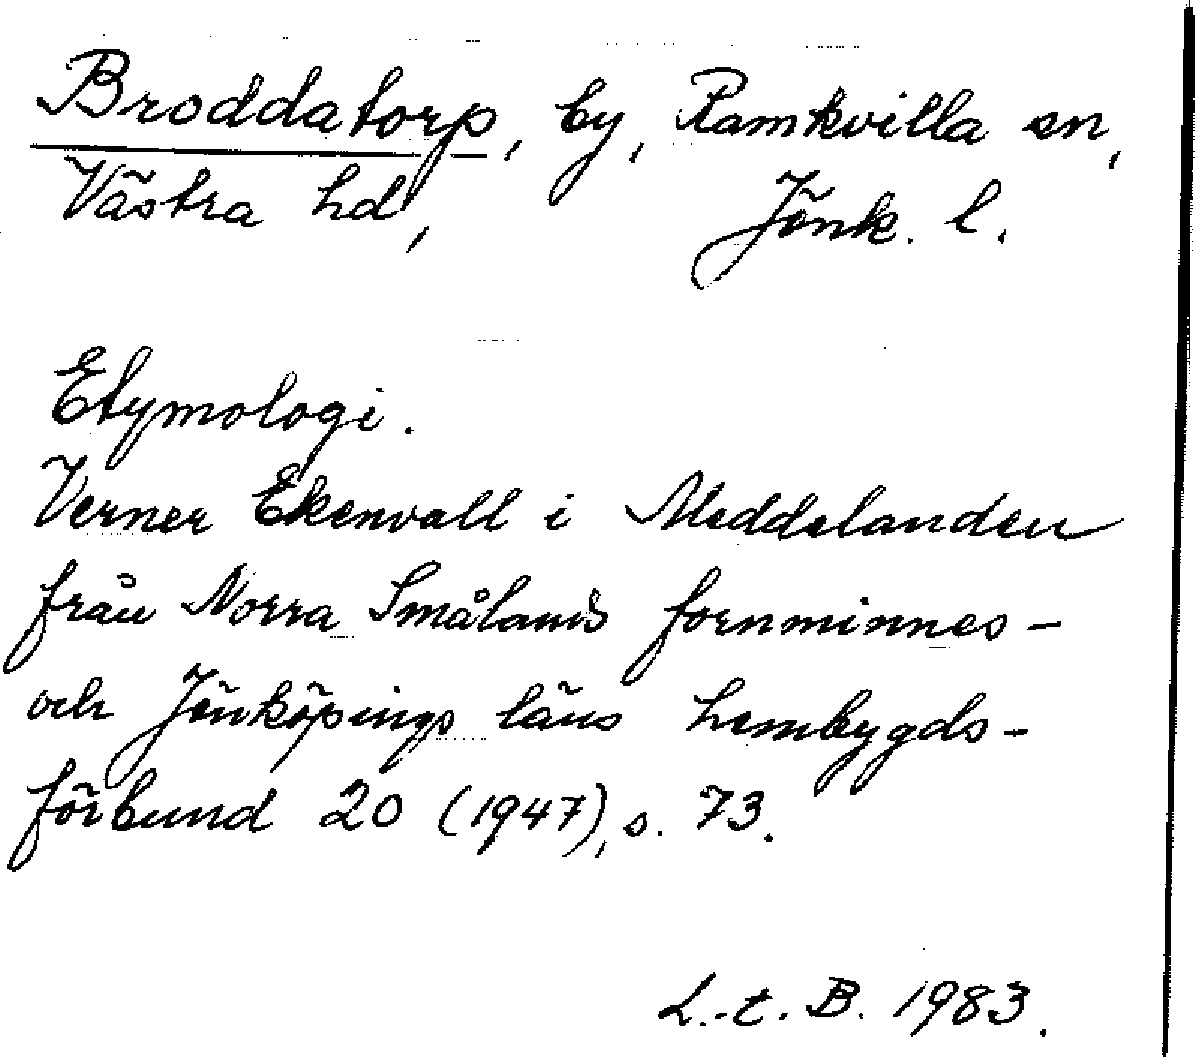 Broddatorp, by, Ramkvilla sn,
Västra hd, Jönk. l.
Etymologi.
Verner Ekenvall i Meddelanden
från Norra Smålands fornminnes-
och Jönköpings läns hembygds-
förbund 20 (1947), s. 73.
L.-E. B. 1983.